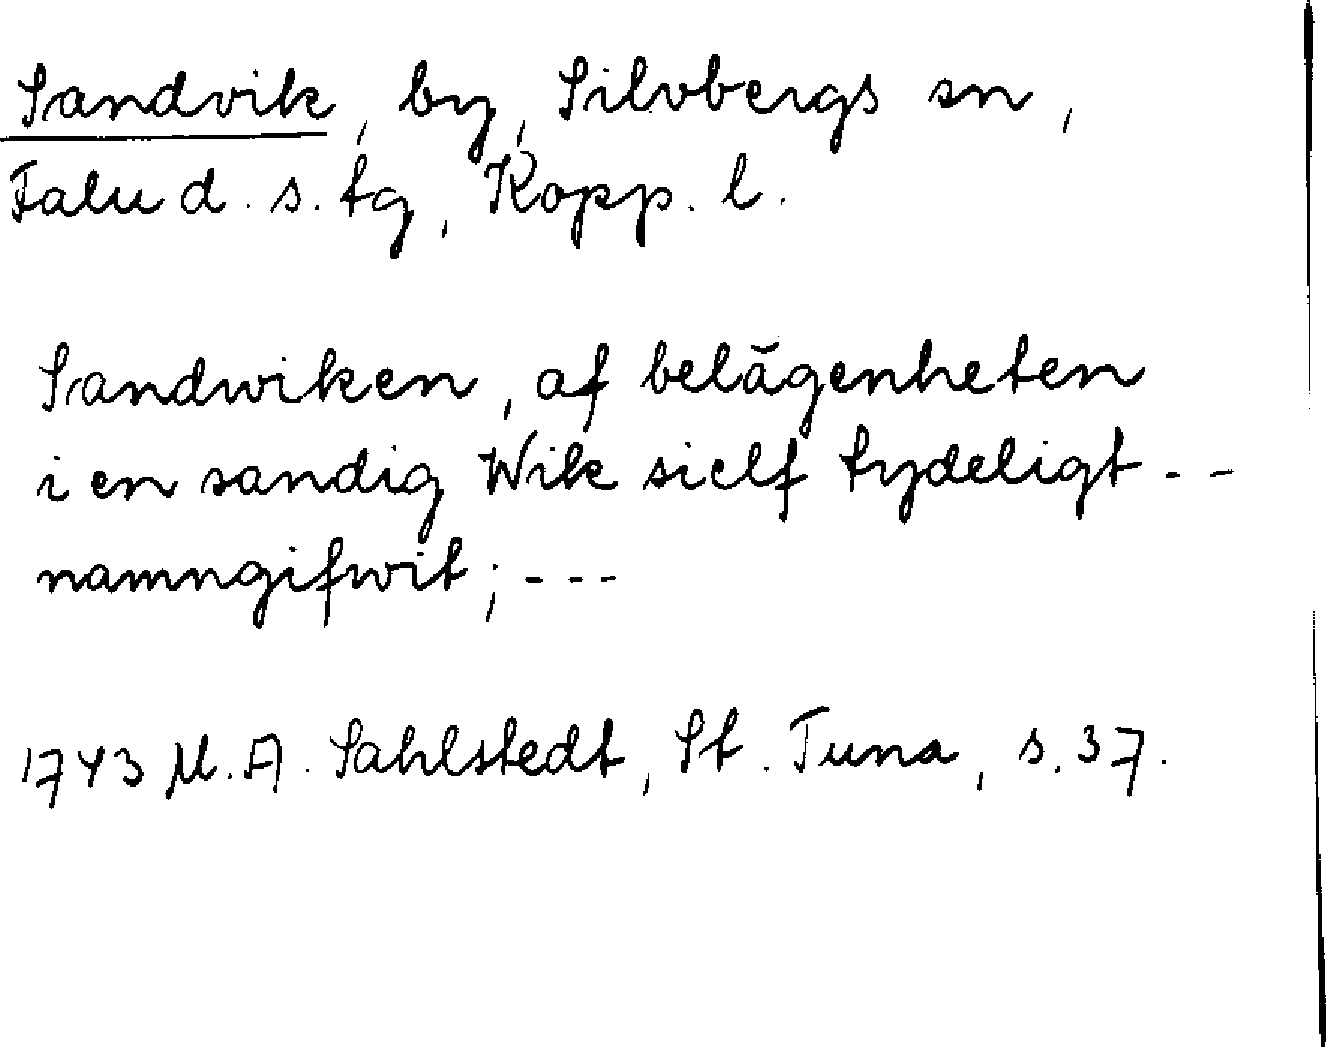 Sandvik, by, Silvbergs sn,
Falu d. s. tg, Kopp. l.
Sandwiken, af belägenheten
i en sandig Wik sielf tydeligt - -
namngifwit; - - -
1743 M. A. Sahlstedt, St. Tuna, s. 37.